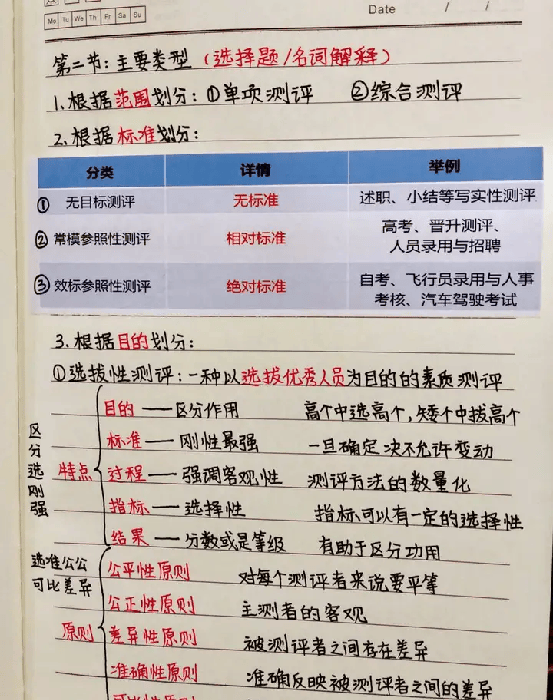 Mo Tu We Th Fr Sa Su
Date / /
第二节:主要类型(选择题/名词解释)
1.根据范围划分:①单项测评 ②综合测评
2.根据标准划分:
分类 详情 举例
① 无目标测评 无标准 述职、小结等写实性测评
② 常模参照性测评 相对标准 高考、晋升测评、
人员录用与招聘
③ 效标参照性测评 绝对标准 自考、飞行员录用与人事
考核、汽车驾驶考试
3.根据目的划分:
①选拔性测评:一种以选拔优秀人员为目的的素质测评
区分选刚强
特点
目的——区分作用 高个中选高个,矮个中拔高个
标准——刚性最强 一旦确定决不允许变动
过程——强调客观性 测评方法的数量化
指标——选择性 指标可以有一定的选择性
结果——分数或是等级 有助于区分功用
选准公公
可比差异
原则
公平性原则 对每个测评者来说要平等
公正性原则 主测者的客观
差异性原则 被测评者之间存在差异
准确性原则 准确反映被测评者之间的差异